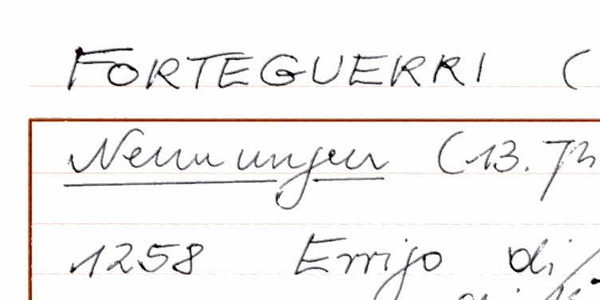 FORTEGUERRI (
Nennungen (13. Jh
1258 Errigo di